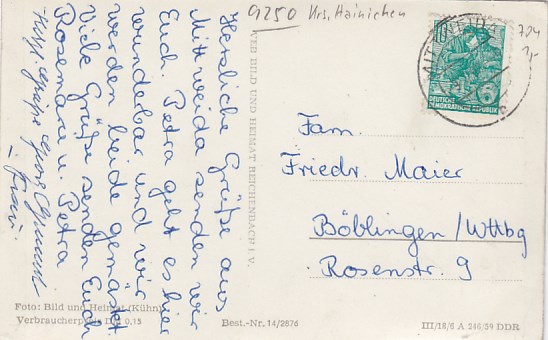 9250 Krs. Hainichen
704
Herzliche Grüße aus
Mittweida senden wir
Euch. Petra geht es hier
wunderbar und wir
werden beide gemästet
Viele Grüße senden Euch
Rosemarie u. Petra
VEB BILD UND HEIMAT REICHENBACH I. V.
DEUTSCHE
DEMOKRATISCHE REPUBLIK
6
Fam.
Friedr. Maier
Böblingen / Wttbg
Rosenstr. 9
Foto: Bild und Heimat (Kühn)
Verbraucherpreis DM 0,15
Best.-Nr. 14/2876
III/18/6 A 246/59 DDR